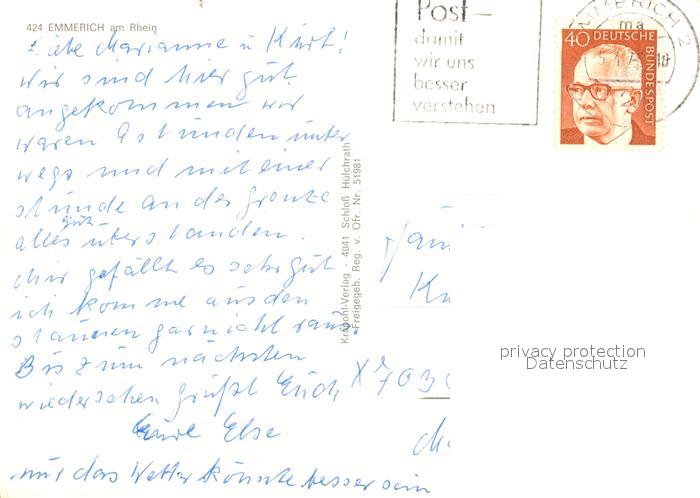 424 EMMERICH am Rhein
Liebe Marianne u Kurt!
wir sind hier gut
angekommen wir
waren 9 stunden unter
wegs und mit einer
stunde an der grentze
gut
alles überstanden.
Mir gefällt es sehr gut
ich komme aus den
staunen garnicht raus.
Bis zum nächsten
wiedersehen grüßt Euch
Eure Else
nur das Wetter könnte besser sein
Krapohl-Verlag - 4041 Schloß Hülchrath
Freigegeb. Reg. v. Ofr. Nr. S1981
Post-
damit
wir uns
besser
verstehen
EMMERICH 2
ma
40 DEUTSCHE
BUNDESPOST
Ku
X 703
privacy protection
Datenschutz